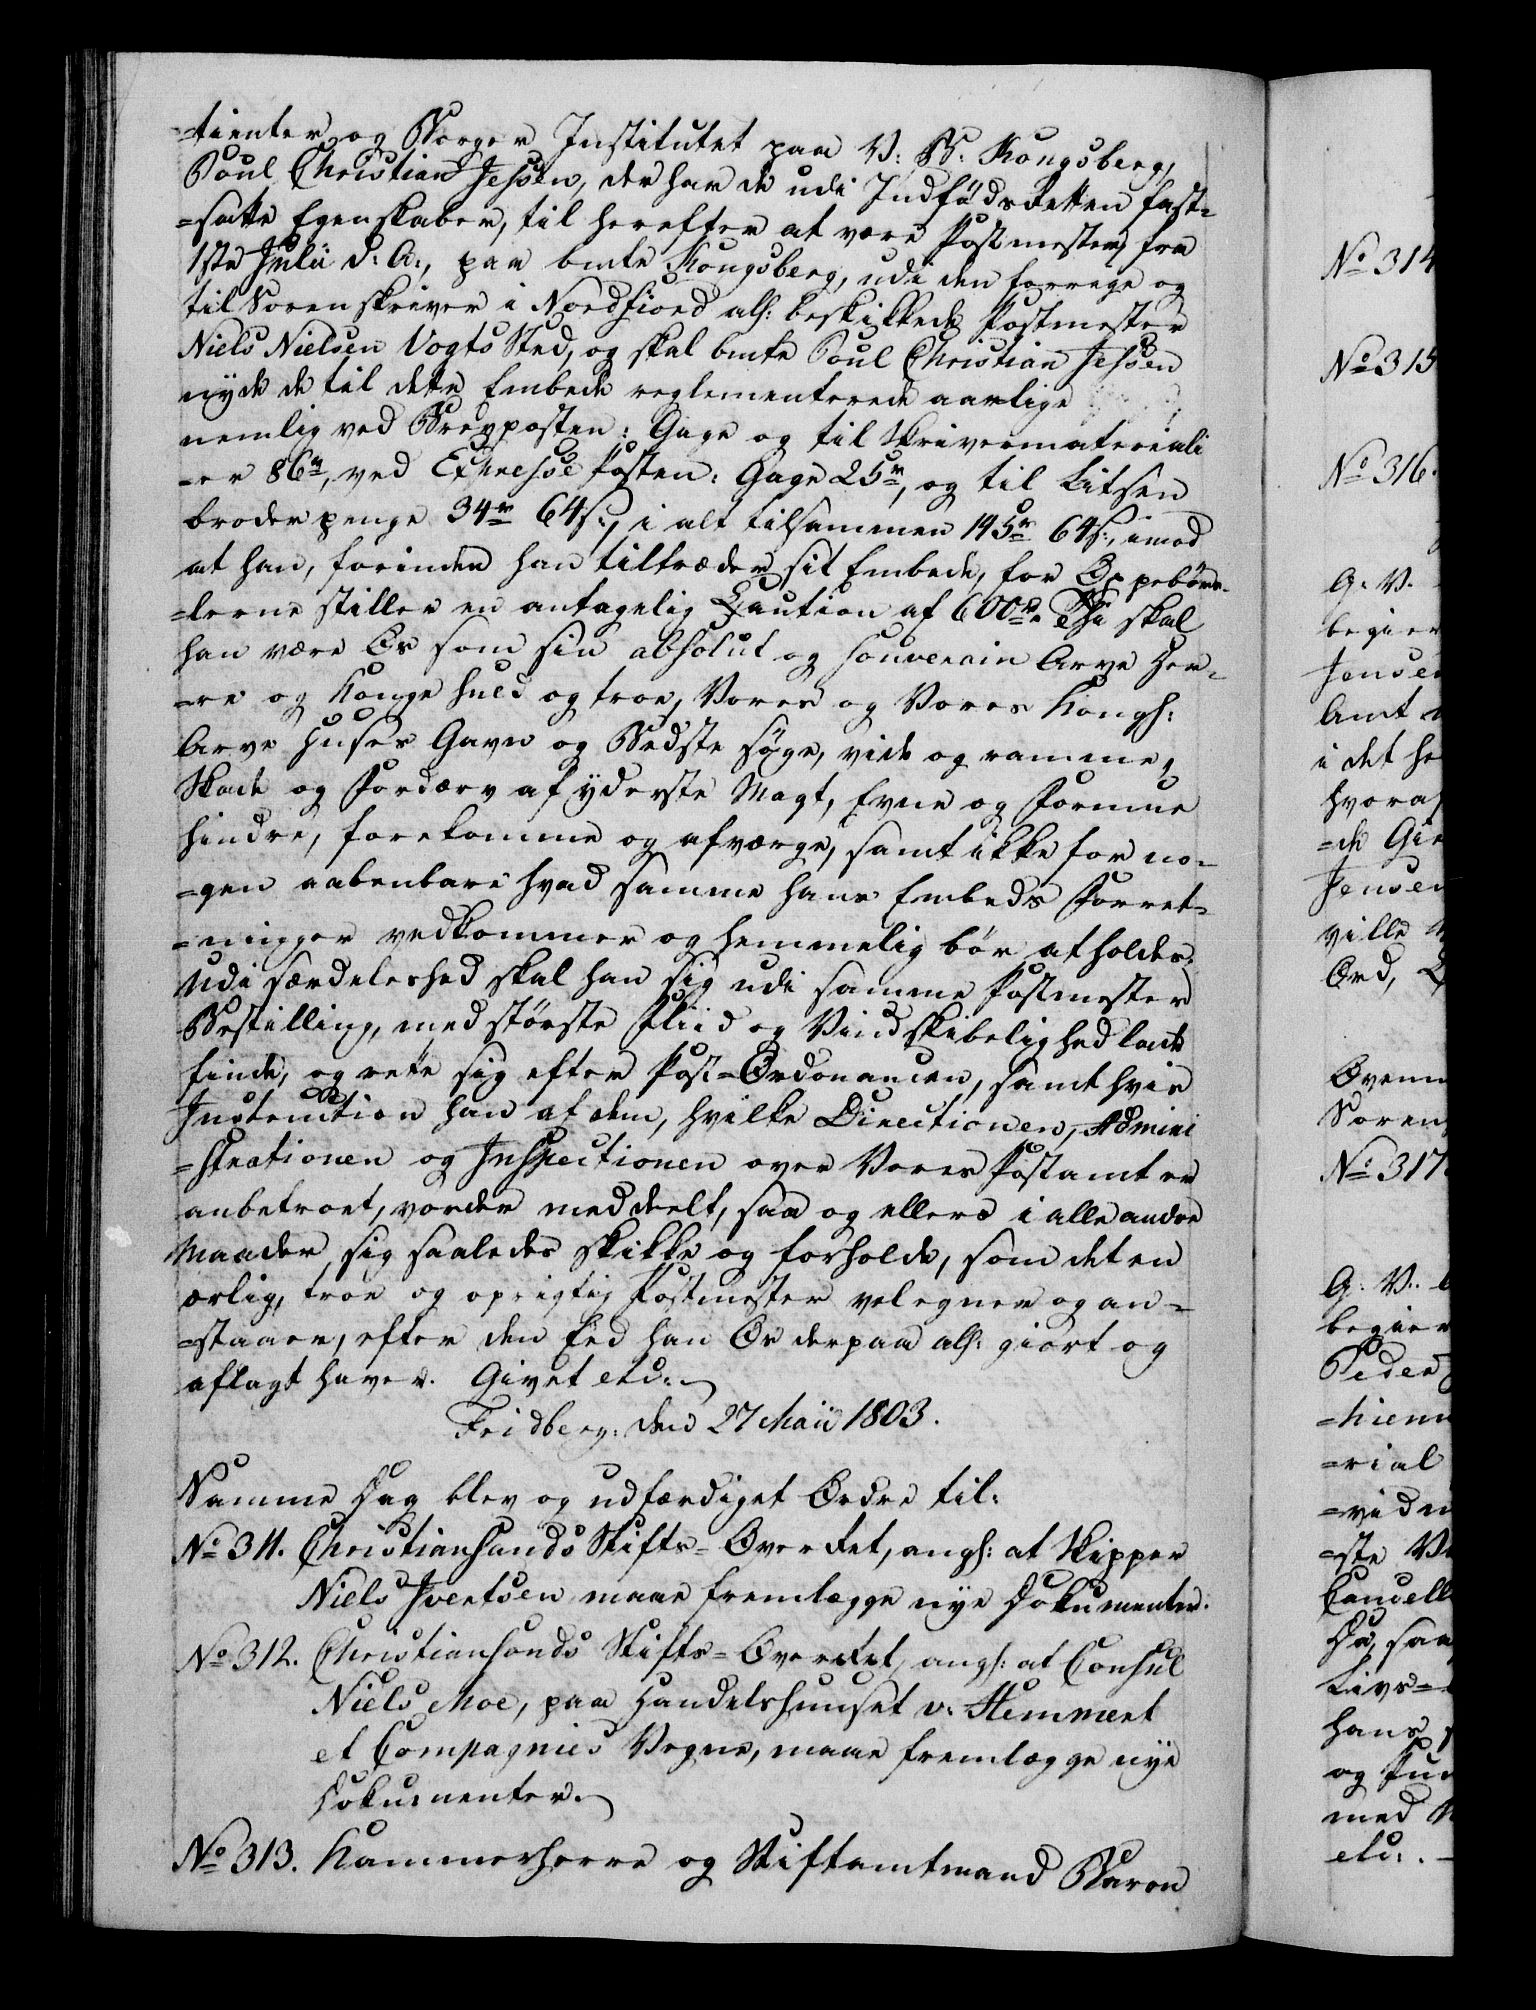 =tienter og Borger Institutet paa V: B: Kongsberg,
Poul Christian Jessen, der har de udi Indfødsretten fast-
=satte Egenskaber, til herefter at være Postmester, fra
1ste Julii d: A:, paa bmte Kongsberg, udi den forrige og
til Sorenskriver i Nordfiord als: beskikkede Postmester
Niels Nielsen Vogts Sted, og skal bmte Poul Christian Jessen
nyde de til dette Embede reglementerede aarlige
nemlig ved Brevposten: Gage og til Skrivermateriali
=er 86 r, ved Exprèsse Posten: Gage 25 r, og til Litsen
broderpenge 34 r 64 s:, i alt tilsammen 145 r 64 s:, imod
at han, forinden han tiltræder sit Embede, for Oppebørs-
=lerne stiller en antagelig Caution af 600 rd. Thi skal
han være Os som sin absolut og souverain Arve Her-
=re og Konge huld og troe, Vores og Vores Kongl:
Arve Huses Gavn og Bedste søge, vide og ramme,
Skade og Fordærv af yderste Magt, Evne og Formue
hindre, forekomme og afværge, samt ikke for no-
=gen aabenbare hvad samme hans Embeds Forret-
=ninger vedkommer og hemmelig bør at holdes:
Udi særdeleshed skal han sig udi samme Postmester
Bestilling, med største Fliid og Vindskibelighed lade
finde, og rette sig efter Post=Ordonancen, samt hvis
Instruction han af dem, hvilke Directionen, Admini
=strationen og Inspectionen over Vores Postamt er
anbetroet, vorder meddeelt, saa og ellers i alle andre
Maader sig saaledes skikke og forholde, som det en
ærlig, troe og oprigtig Postmester vel egner og an-
=staaer, efter den Eed han Os derpaa als: giort og
aflagt haver. Givet etc:
Fridberg: den 27 Maii 1803.
Samme Dag blev og udfærdiget Ordre til:
No 311. Christiansands Stifts=Overret, angl: at Skipper
Niels Ivertsen maae fremlægge nye Dokumenter.
No 312. Christiansands Stifts=Overret, angl: at Consul
Niels Moe, paa Handelshuuset v: Hemmert
et Compagnies Vegne, maae fremlægge nye
Dokumenter.
No 313. Kammerherre og Stiftamtmand Baron
No 314
No 315
No 316.
G. V.
begier
Jensen
Amt
i det he
hvoraf
=de Gie
Jensen
ville
Ord,
Ovenn
Soren
No 317.
G. V.
begier
Peder
=hienn
=rial
=vidn
=ste V
Cancell
Du, saa
Livs=
hans
og
med
etc: .